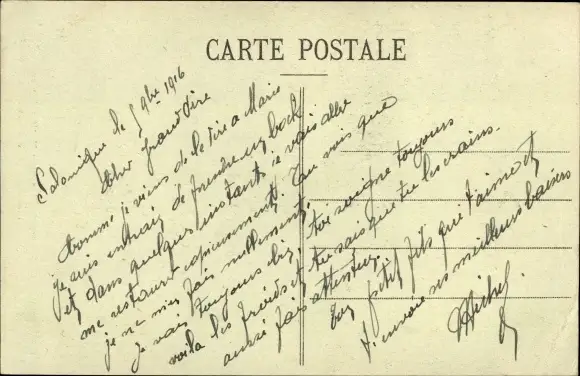 CARTE POSTALE
Salonique le 5 9bre 1916
Cher Grand Père
Comme je viens de le dire à Marie
je suis entrain de prendre un bock
et dans quelques instants je vais aller
me restaurer copieusement. Tu vois que
je ne m'en fais nullement.
Je vais toujours bien,
voila les froids et
aussi fais attention.
toi soigne toujours
tu sais que tu les crains.
Ton petit fils qui t'aime et
t'envoie ses meilleurs baisers
Michel